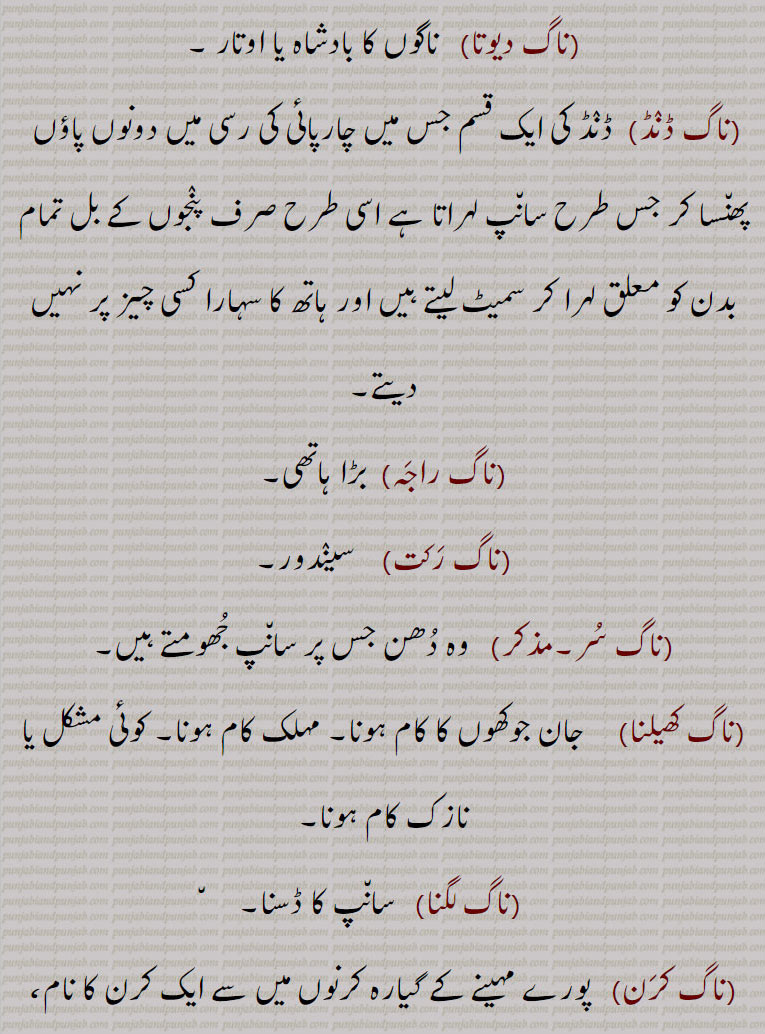 (ناگ دیوتا) ناگوں کا بادشاہ یا اوتار ۔
(ناگ ڈنڈ) ڈنڈ کی ایک قسم جس میں چارپائی کی رسی میں دونوں پاؤں
پھنسا کر جس طرح سانپ لہراتا ہے اسی طرح صرف پنجوں کے بل تمام
بدن کو معلق لہرا کر سمیٹ لیتے ہیں اور ہاتھ کا سہارا کسی چیز پر نہیں
دیتے۔
(ناگ راجَہ) بڑا ہاتھی۔
(ناگ رَکت) سیندور۔
(ناگ سُر۔مذکر) وہ دُھن جس پر سانپ جُھومتے ہیں۔
(ناگ کھیلنا) جان جوکھوں کا کام ہونا۔ مہلک کام ہونا۔ کوئی مشکل یا
نازک کام ہونا۔
(ناگ لگنا) سانپ کا ڈسنا۔
(ناگ کرَن) پورے مہینے کے گیارہ کرنوں میں سے ایک کرن کا نام،